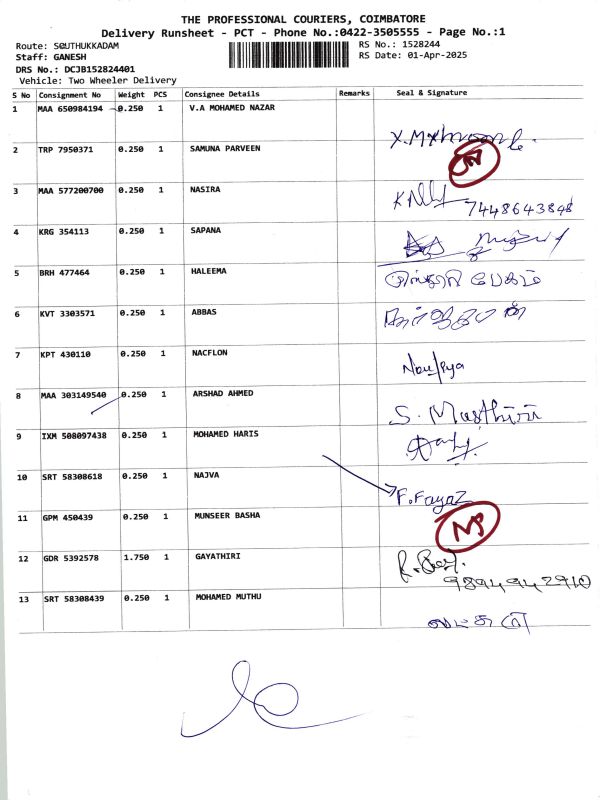 THE PROFESSIONAL COURIERS, COIMBATORE
Delivery Runsheet - PCT - Phone No.:0422-3505555 - Page No.:1
Route: SOUTHUKKADAM
RS No.: 1528244
Staff: GANESH
RS Date: 01-Apr-2025
DRS No.: DCJB152824401
Vehicle: Two Wheeler Delivery
S No Consignment No Weight PCS Consignee Details Remarks Seal & Signature
1 MAA 650984194 0.250 1 V.A MOHAMED NAZAR
2 TRP 7950371 0.250 1 SAMUNA PARVEEN
3 MAA 577200700 0.250 1 NASIRA 7448643848
4 KRG 354113 0.250 1 SAPANA
5 BRH 477464 0.250 1 HALEEMA
6 KVT 3303571 0.250 1 ABBAS
7 KPT 430110 0.250 1 NACFLON
8 MAA 303149540 0.250 1 ARSHAD AHMED
9 IXM 508097438 0.250 1 MOHAMED HARIS
10 SRT 58308618 0.250 1 NAJVA F.Fayaz
11 GPM 450439 0.250 1 MUNSEER BASHA
12 GDR 5392578 1.750 1 GAYATHIRI 9894942910
13 SRT 58308439 0.250 1 MOHAMED MUTHU